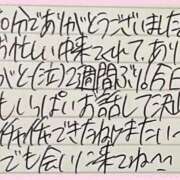 0分でありがとうございました
お忙しい中来てくれてあり
がと(泣)2週間ぶり。今日
もいっぱいお話して沢
イチャイチャできたねまたい〜
でも会いに来てね〜